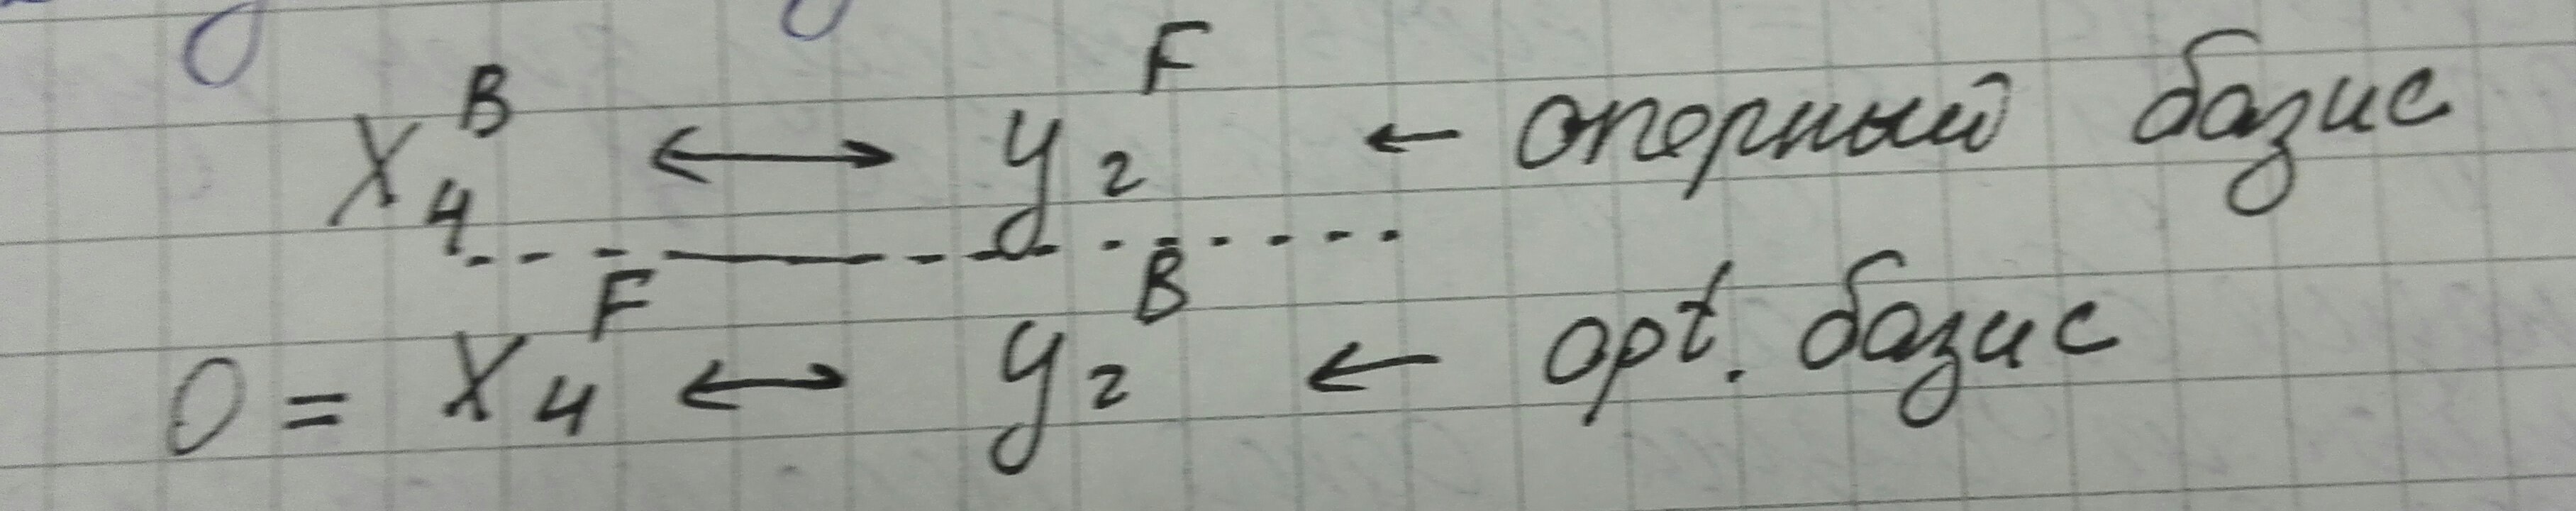 X₄ᴮ ↔ y₂ᶠ ← опорный базис
0 = X₄ᶠ ↔ y₂ᴮ ← opt. базис